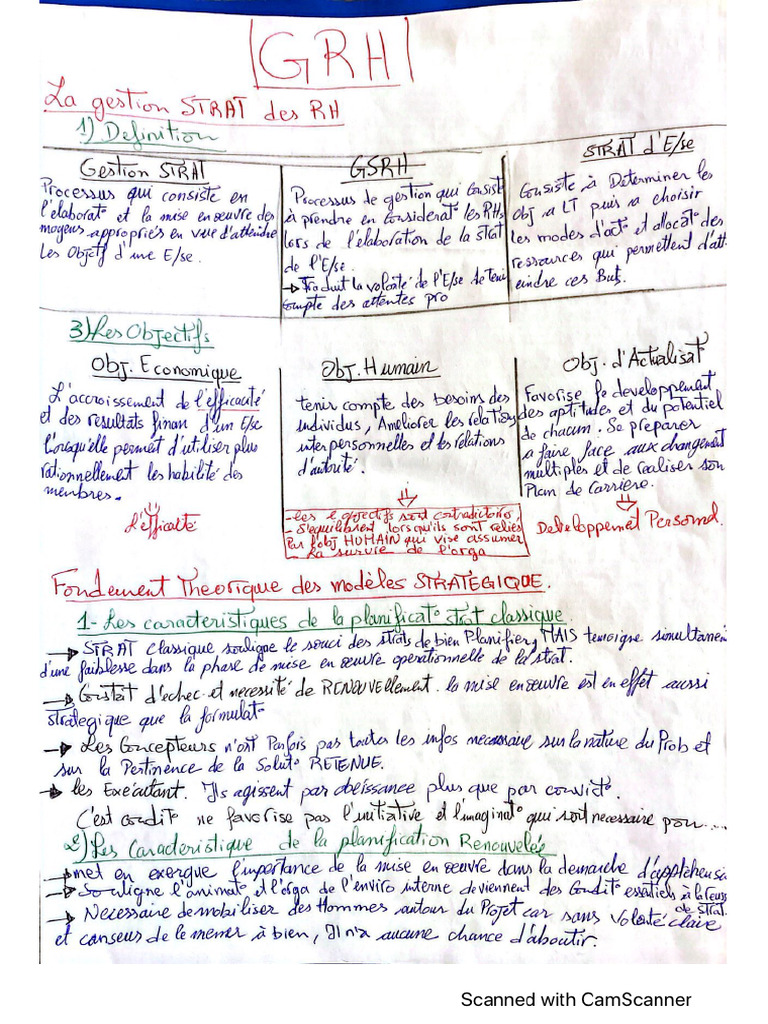 GRH
La gestion STRAT des RH
1) Definition
Gestion STRAT
Processus qui consiste en
l'elaborat° et la mise en oeuvre des
moyens appropriés en vue d'atteindre
Les Objtf d'une E/se.
GSRH
Processus de gestion qui Consiste
à prendre en Considerat° les RHs
lors de l'élaboration de la strat
de l'E/se.
→ Traduit la volonté de l'E/se de tenir
Compte des attentes pro
STRAT d'E/se
Consiste à Determiner les
Obj a LT puis a choisir
les modes d'act° et allocat° des
ressources qui permettent d'att
eindre ces Buts.
3) Les Objectifs
Obj. Economique
L'accroissement de l'éfficacité
et des resultats finan d'un E/se
lorsqu'elle permet d'utiliser plus
rationnellement les habilité des
membres.
l'éfficacité
Obj. Humain
tenir compte des besoins des
individus, Ameliorer les relations
interpersonnelles et les relations
d'autorité.
- Les 2 objectifs sont contradictoires
- S'equilibrent lorsqu'ils sont reliés
Par l'obj HUMAIN qui vise assumer
- la survie de l'orga
Obj. d'Actualisat°
Favorise le developpement
des aptitudes et du potentiel
de chacum. Se preparer
a faire face aux changement
multiples et de realiser son
Plan de Carriere.
Developpement Personnel.
Fondement Theorique des modèles STRATEGIQUE.
1- Les caracteristiques de la planificat° strat classique.
→ STRAT Classique souligne le souci des strats de bien Planifier, MAIS temoigne simultanem
d'une faiblesse dans la phase de mise en oeuvre operationnelle de la strat.
→ Constat d'echec et necessité de RENOUVELLEMENT. la mise en oeuvre est en effet aussi
strategique que la formulat°
→ Les Concepteurs n'ont Parfois pas toutes les infos necessaire sur la nature du Prob et
sur la Pertinence de la Solut° RETENUE.
→ les Executant. Ils agissent par obeissance plus que par convict°.
C'est condit° ne favorise pas l'initiative et l'imaginat° qui soit necessaire pour...
2) Les Caracteristique de la planification Renouvelée
→ met en exergue l'importance de la mise en oeuvre dans la demarche d'appréhensio
→ Souligne l'animat° et l'orga de l'enviro interne deviennent des Condit° essentiels à la reuss
de strat.
→ Necessaire de mobiliser des Hommes autour du Projet car sans Volonté claire
et consensus de le mener à bien, Il n'a aucune chance d'aboutir.
Scanned with CamScanner